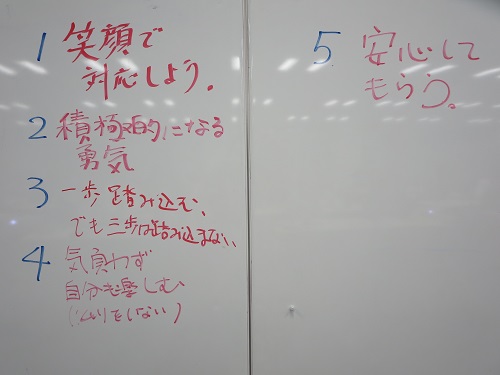 1 笑顔で
対応しよう。
2 積極的になる
勇気
3 一歩踏み込む、
でも三歩は踏み込まない、
4 気負わず
自分も楽しむ、
(ムリをしない)
5 安心して
もらう。